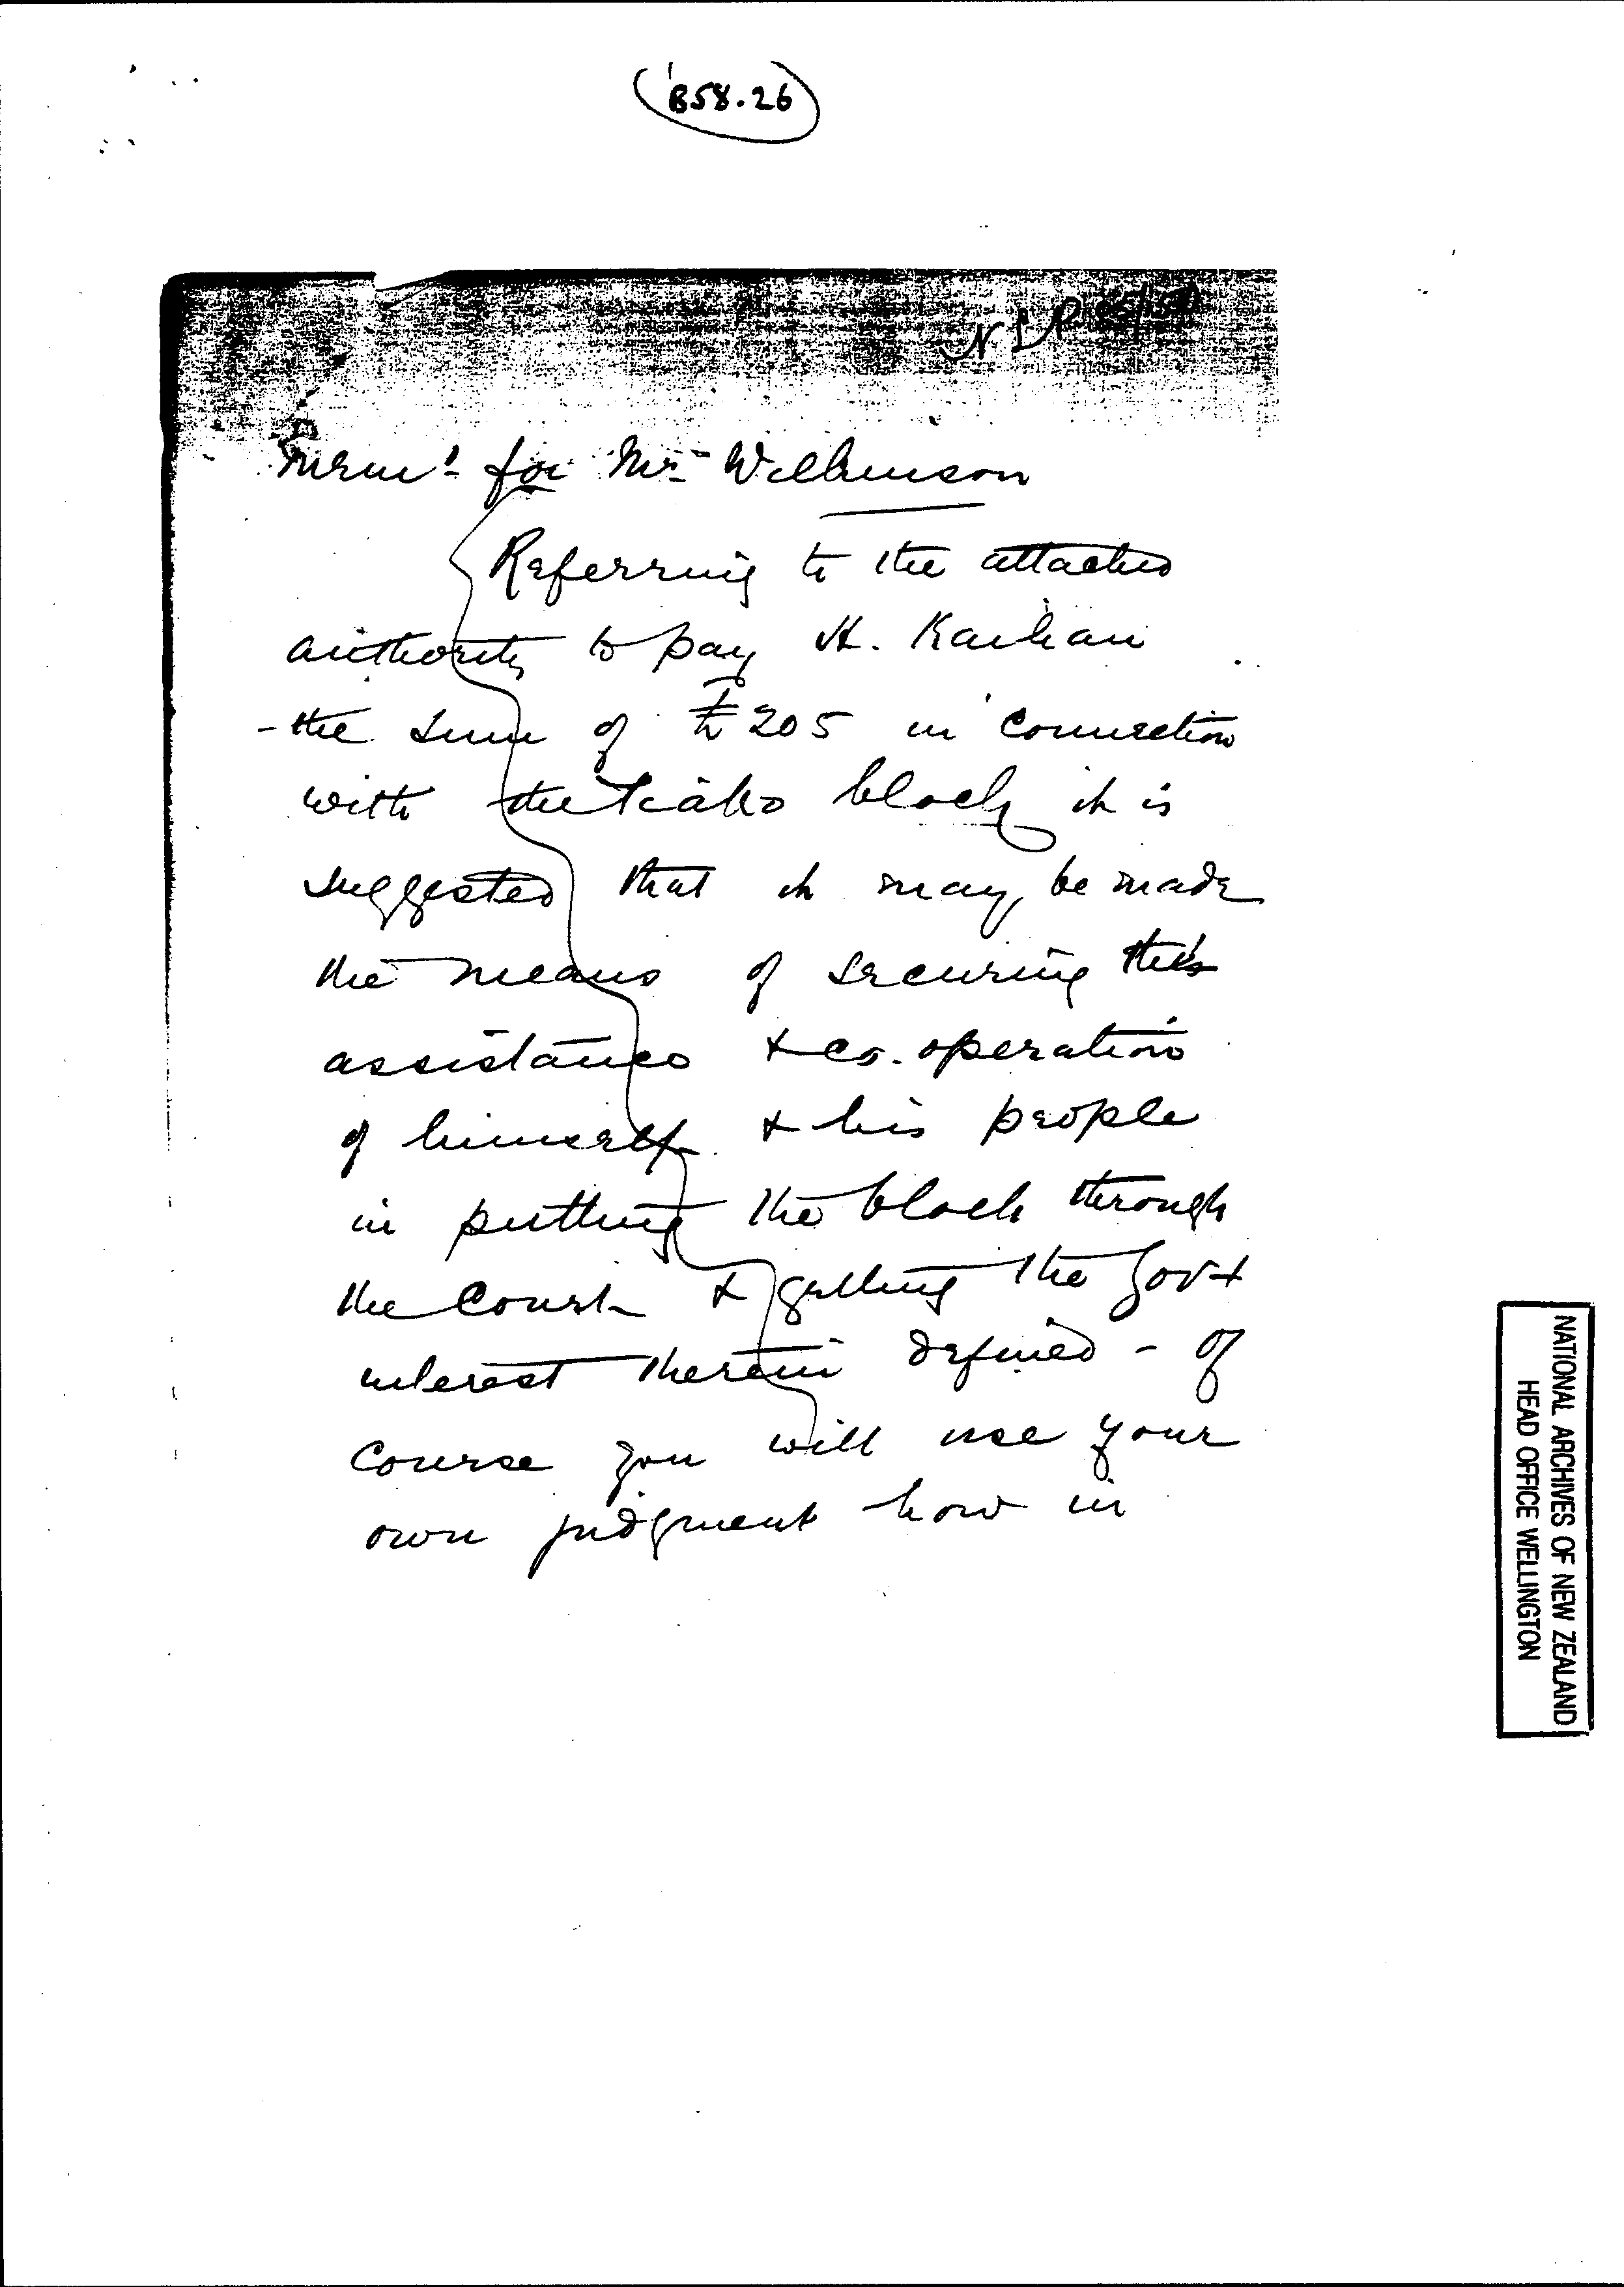 B58.26
N.L.P. 85/15
Memo. for Mr. Wilkinson
Referring to the attached
authority to pay H. Kaihau
the sum of £205 in connection
with the block it is
suggested that it may be made
the means of securing the
assistance & co.operation
of himself & his people
in putting the block through
the Court & getting the Govt
interest therein defined - of
course you will use your
own judgment how in
NATIONAL ARCHIVES OF NEW ZEALAND
HEAD OFFICE WELLINGTON